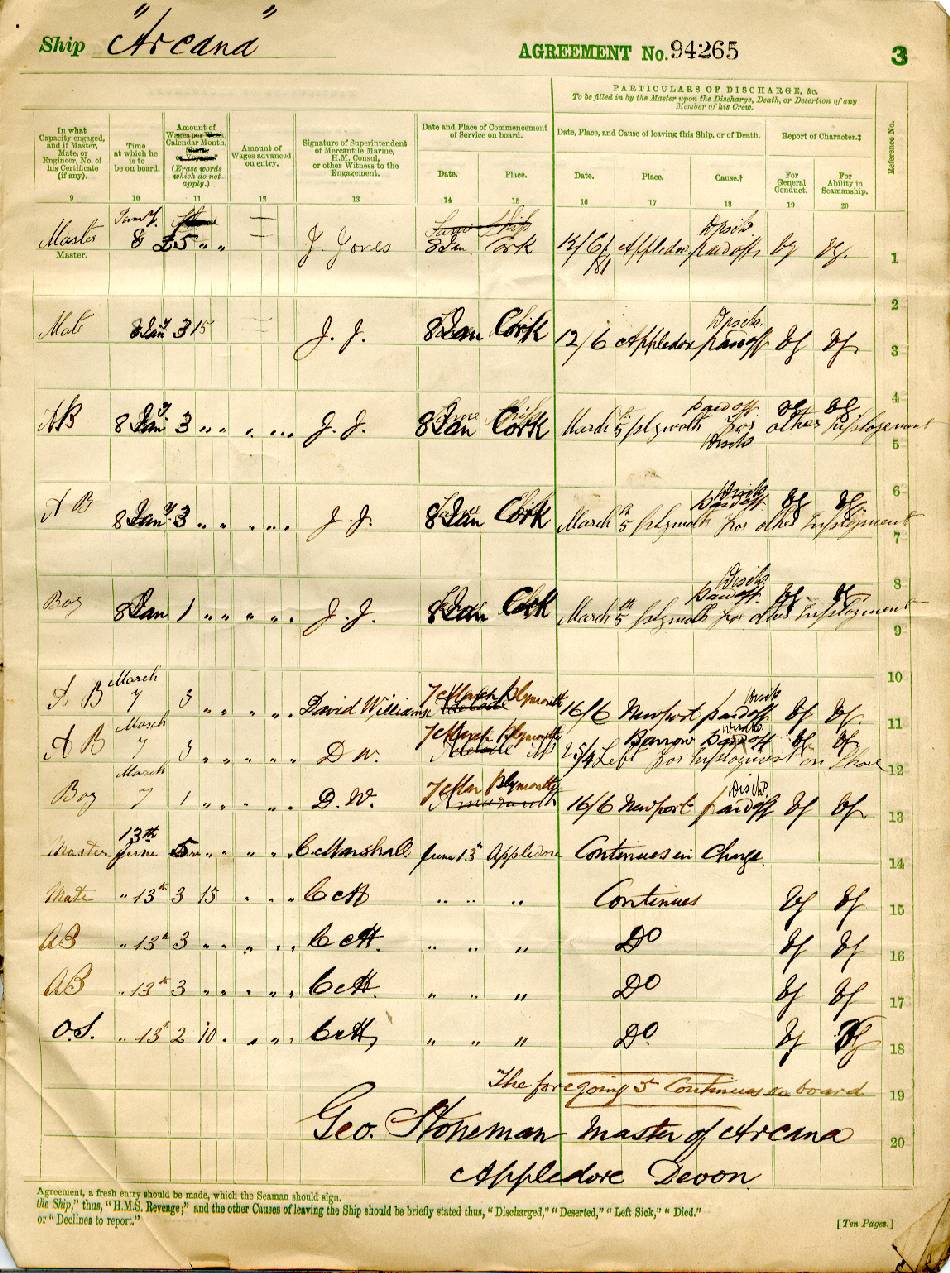 Ship "Arcana" AGREEMENT No. 94265 3
PARTICULARS OF DISCHARGE, &c.
To be filled in by the Master upon the Discharge, Death, or Desertion of any Member of his Crew.
In what Capacity engaged, and if Master, Mate, or Engineer, No. of his Certificate (if any).
Time at which he is to be on board.
Amount of Wages per Calendar Month, (Erase words which do not apply.)
Amount of Wages advanced on entry.
Signature of Superintendent of Mercantile Marine, H.M. Consul, or other Witness to the Engagement.
Date and Place of Commencement of Service on board.
Date. Place.
Date, Place, and Cause of leaving this Ship, or of Death.
Date. Place. Cause.†
Report of Character.‡
For General Conduct. For Ability in Seamanship.
Reference No.
9 10 11 12 13 14 15 16 17 18 19 20
Master 8 £5 " " J. Jones 8 Jan Cork Appledore paid off Vg Vg. 1
Master.
2
Mate 8 Jany 3 15 J. J. 8 Jan Cork 12/6 Appledore Disch. paid off Vg Vg 3
4
AB 8 Jany 3 " " " " J. J. 8 Jan Cork March 5th paid off for other Employment Vg Vg 5
6
AB 8 Jany 3 " " " " J. J. 8 Jan Cork March 5th for other Employment Vg Vg 7
8
Boy 8 Jan 1 " " " " J. J. 8 Jan Cork March 5th for other Employment Vg Vg 9
10
AB March 7 3 " " " " David Williams 7 March Plymouth 16/6 Newport paid off Vg Vg 11
AB March 7 3 " " " " D W. 7 March Plymouth Barrow Left for Employment on Shore Vg Vg 12
Boy March 7 1 " " " " D. W. 7 Mar Plymouth 16/6 Newport Disch. paid off Vg Vg 13
Master 13th June 5 " " " " June 13th Appledore Continues in Charge 14
Mate " 13th 3 15 " " " " " " Continues Vg Vg 15
AB " 13th 3 " " " " " " " Do Vg Vg 16
AB " 13th 3 " " " " " " " Do Vg Vg 17
O.S. " 13th 2 10 " " " " " " Do Vg Vg 18
The foregoing 5 Continues on board 19
Geo. Stoneman Master of Arcana 20
Appledore Devon
Agreement, a fresh entry should be made, which the Seaman should sign.
the Ship," thus, "H.M.S. Revenge;" and the other Causes of leaving the Ship should be briefly stated thus, "Discharged," "Deserted," "Left Sick," "Died."
or "Declines to report."
[Ten Pages.]